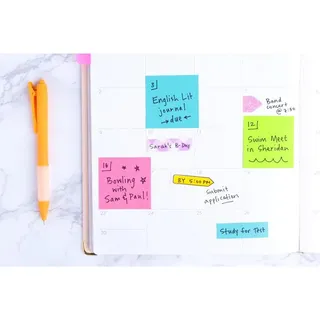 3
English Lit
journal
due
Band
concert
@ 7:30
12
Swim Meet
in Sheridan
Sarah's B-Day
16
Bowling
with
Sam & Paul!
BY 5:00 PM
Submit
application
Study for Test